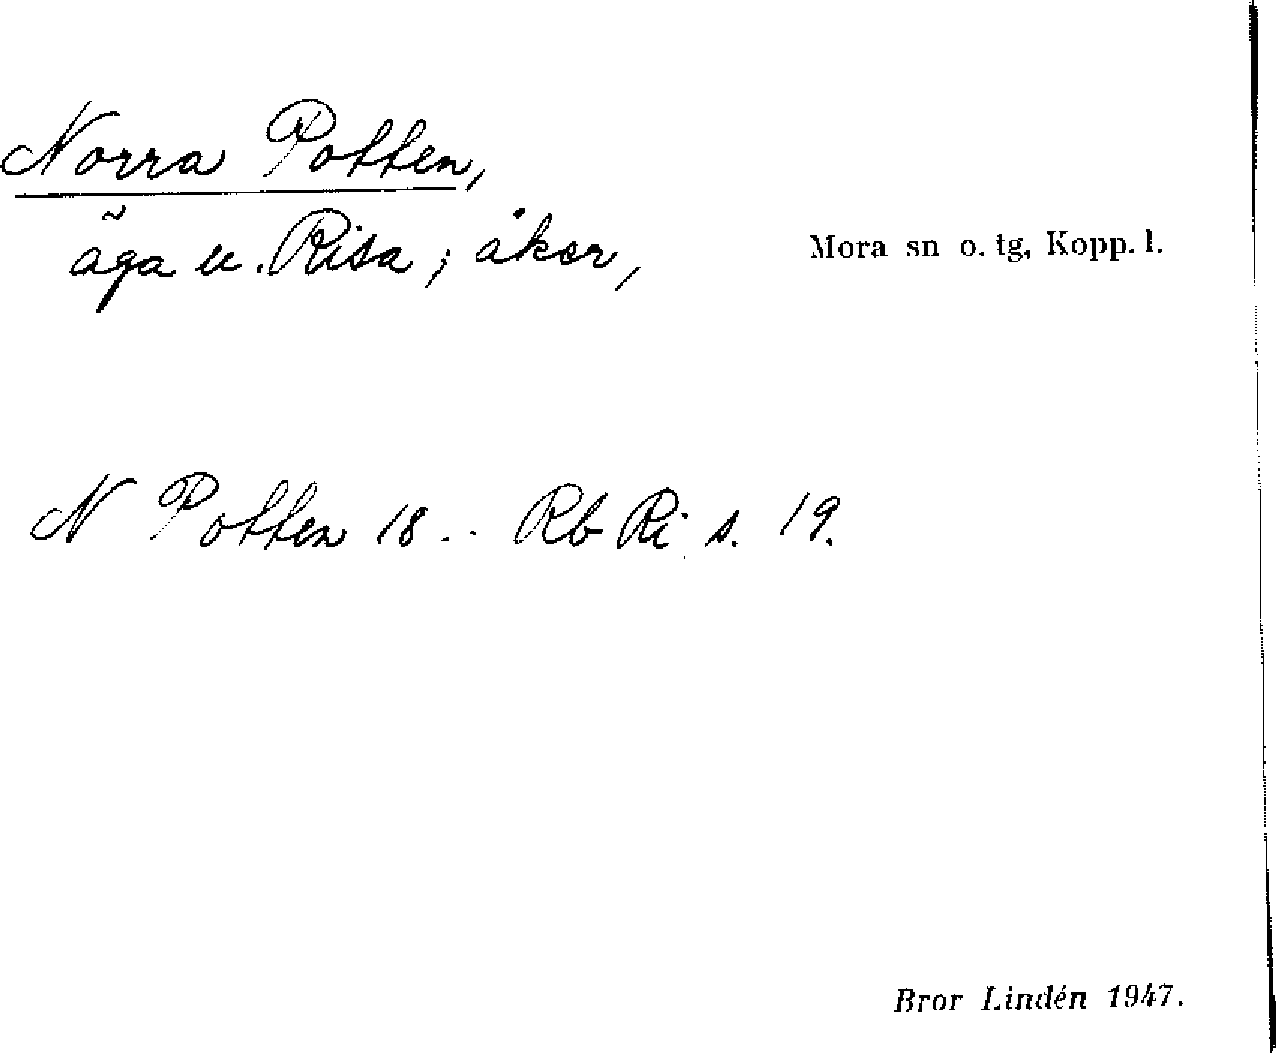 Norra Potten,
äga u. Risa; åker,
Mora sn o. tg, Kopp. l.
N Potten 18 . . Rb Ri s. 19.
Bror Lindén 1947.